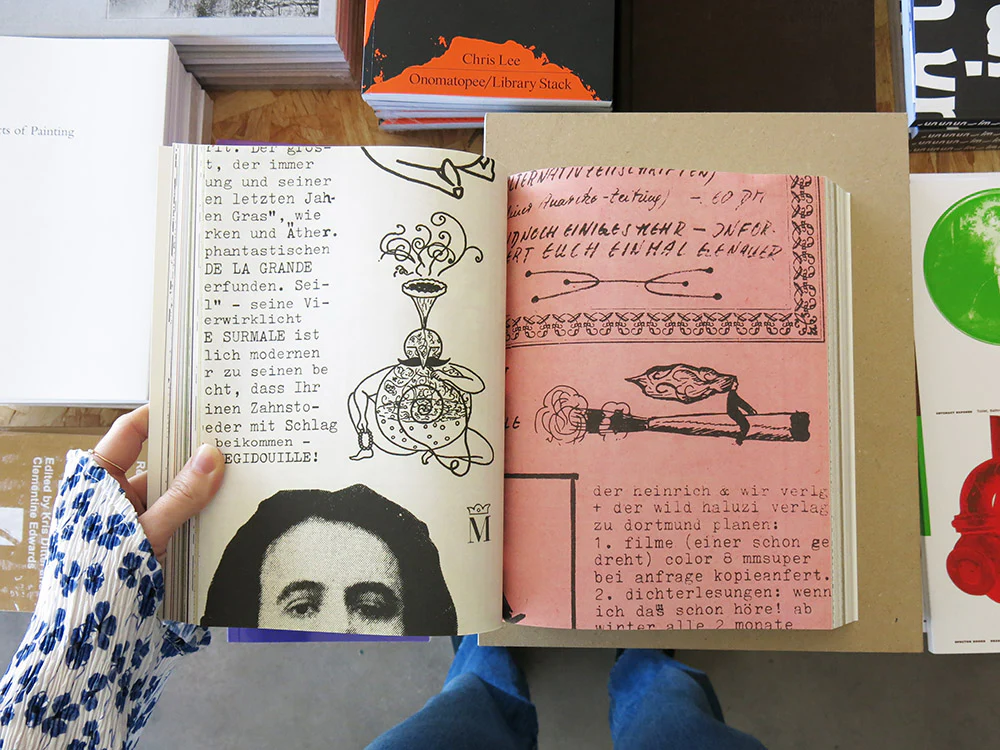 Chris Lee
Onomatopee/Library Stack
cts of Painting
Edited by Kris Dittm
Clementine Edwards
rit. Der gros-
t, der immer
ung und seiner
en letzten Jah-
en Gras", wie
rken und Äther.
phantastischen
DE LA GRANDE
erfunden. Sei-
l" - seine Vi-
erwirklicht
E SURMALE ist
lich modernen
r zu seinen be
cht, dass Ihr
inen Zahnsto-
eder mit Schlag
beikommen -
EGIDOUILLE!
M
ALTERNATIVZEITSCHRIFTEN)
Anarcho-Zeitung) - 60 Pf
NOCH EINIGES MEHR - INFOR-
ERT EUCH EINMAL GENAUER
LE
der heinrich & wir verlg
+ der wild haluzi verlag
zu dortmund planen:
1. filme (einer schon ge
dreht) color 8 mmsuper
bei anfrage kopieanfert.
2. dichterlesungen: wenn
ich das schon höre! ab
winter alle 2 monate